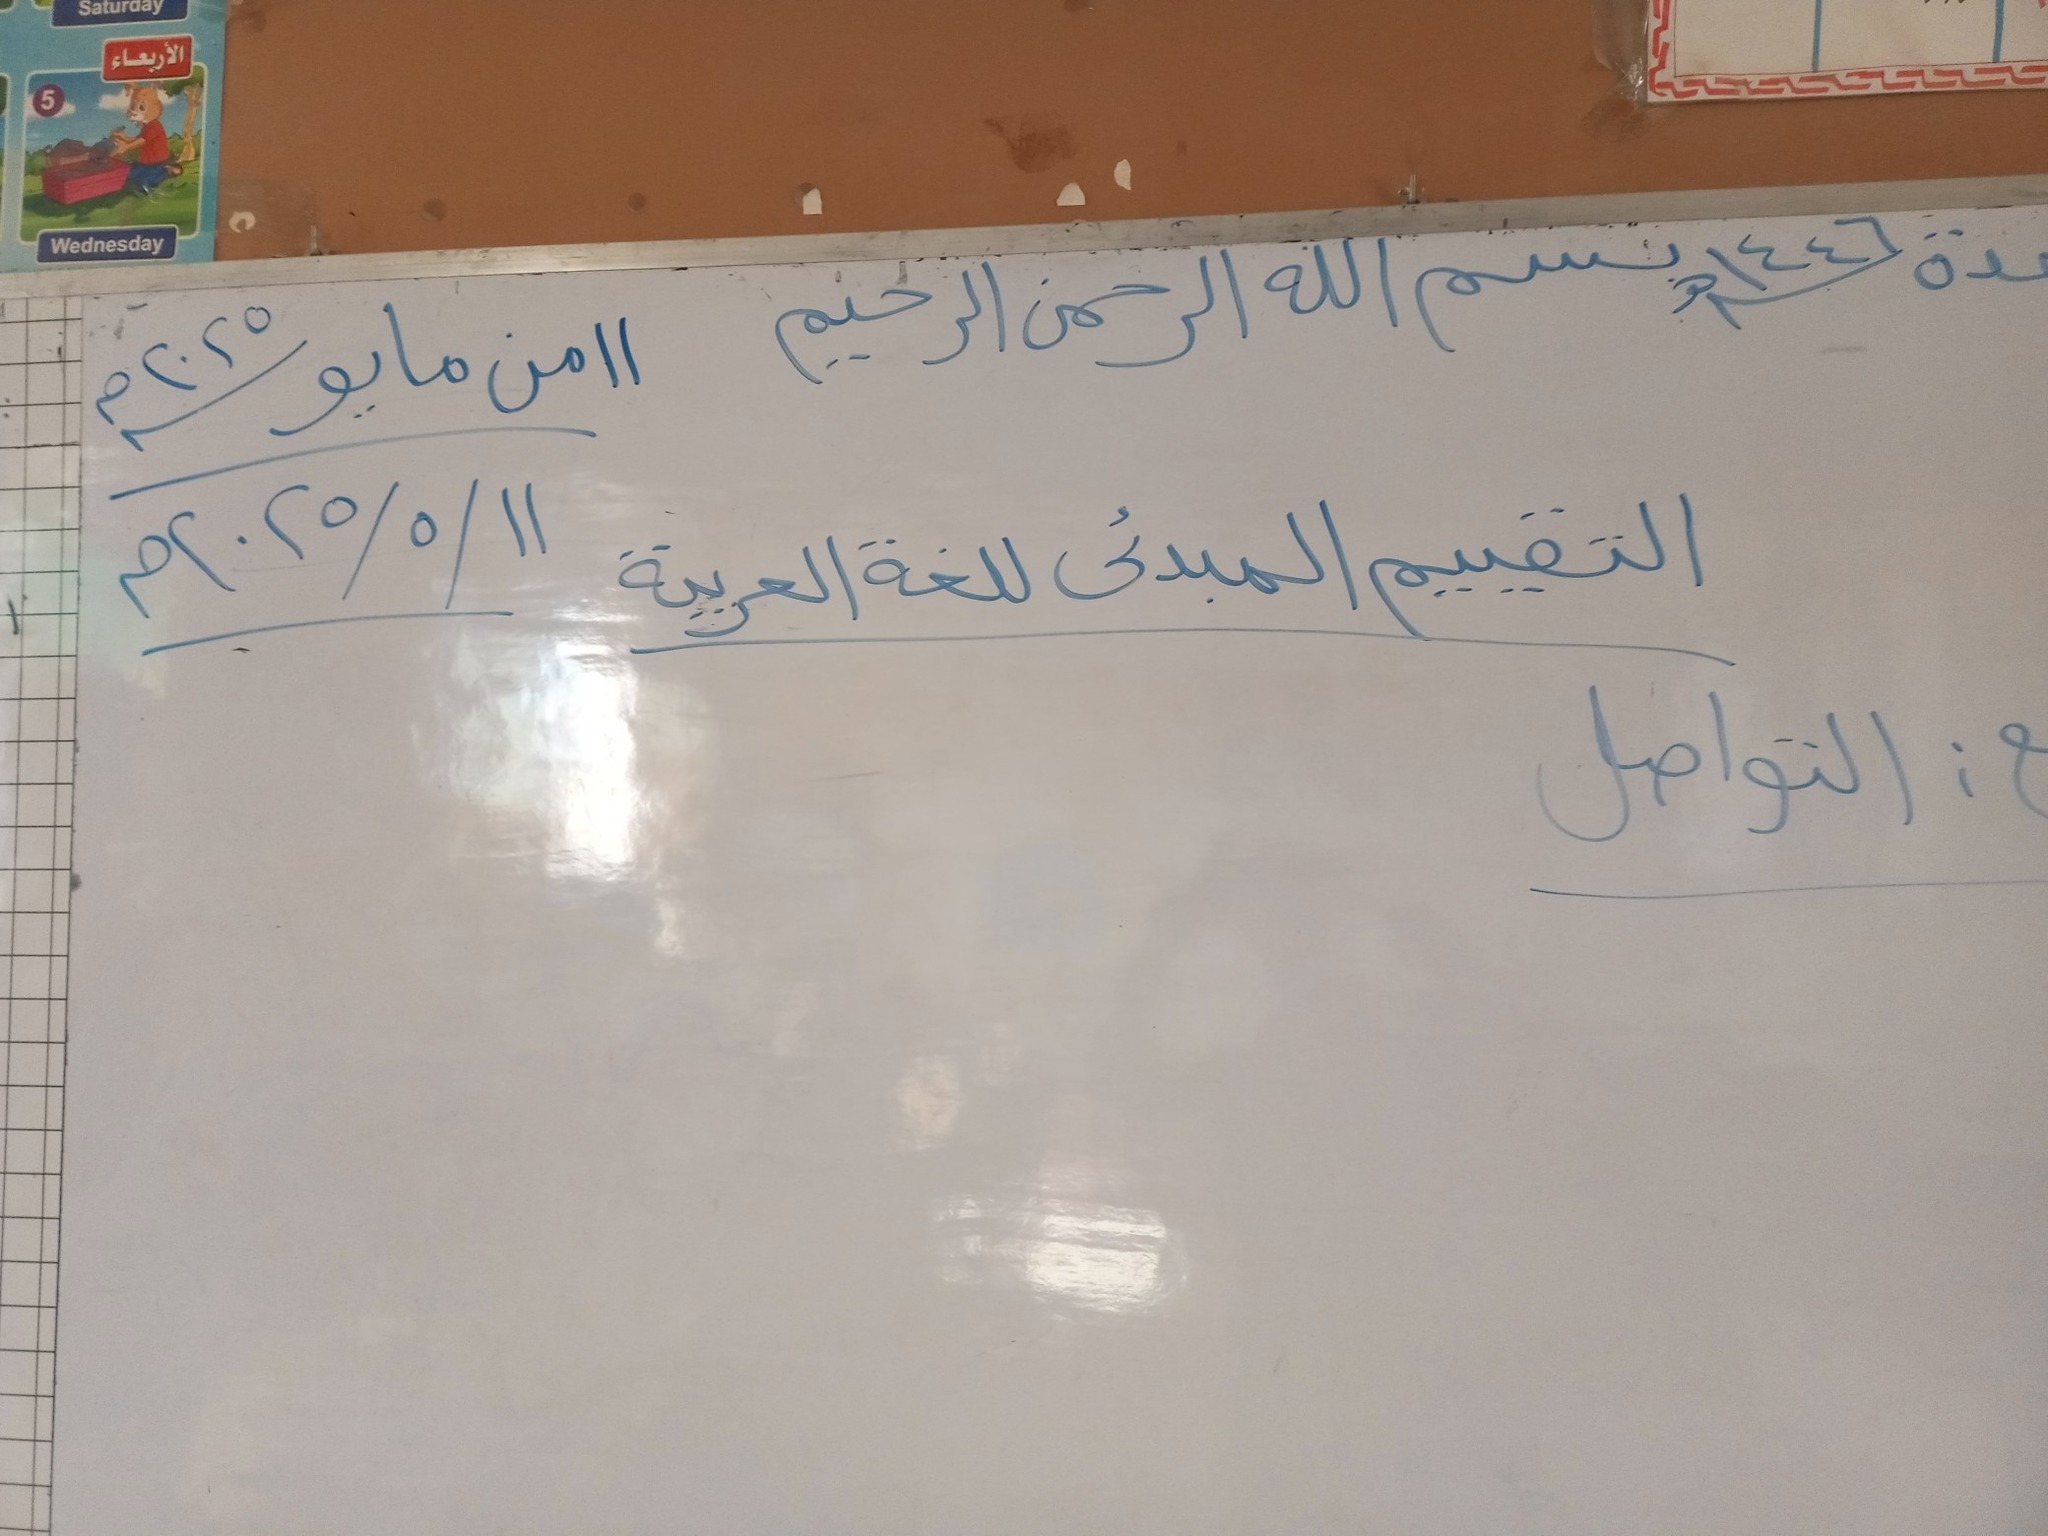 Saturday
الأربعاء
5
Wednesday
١٤٤٦هـ بسم الله الرحمن الرحيم ١١ من مايو ٢٠٢٥م
التقييم المبدئى للغة العربية ١١/٥/٢٠٢٥م
: التواصل